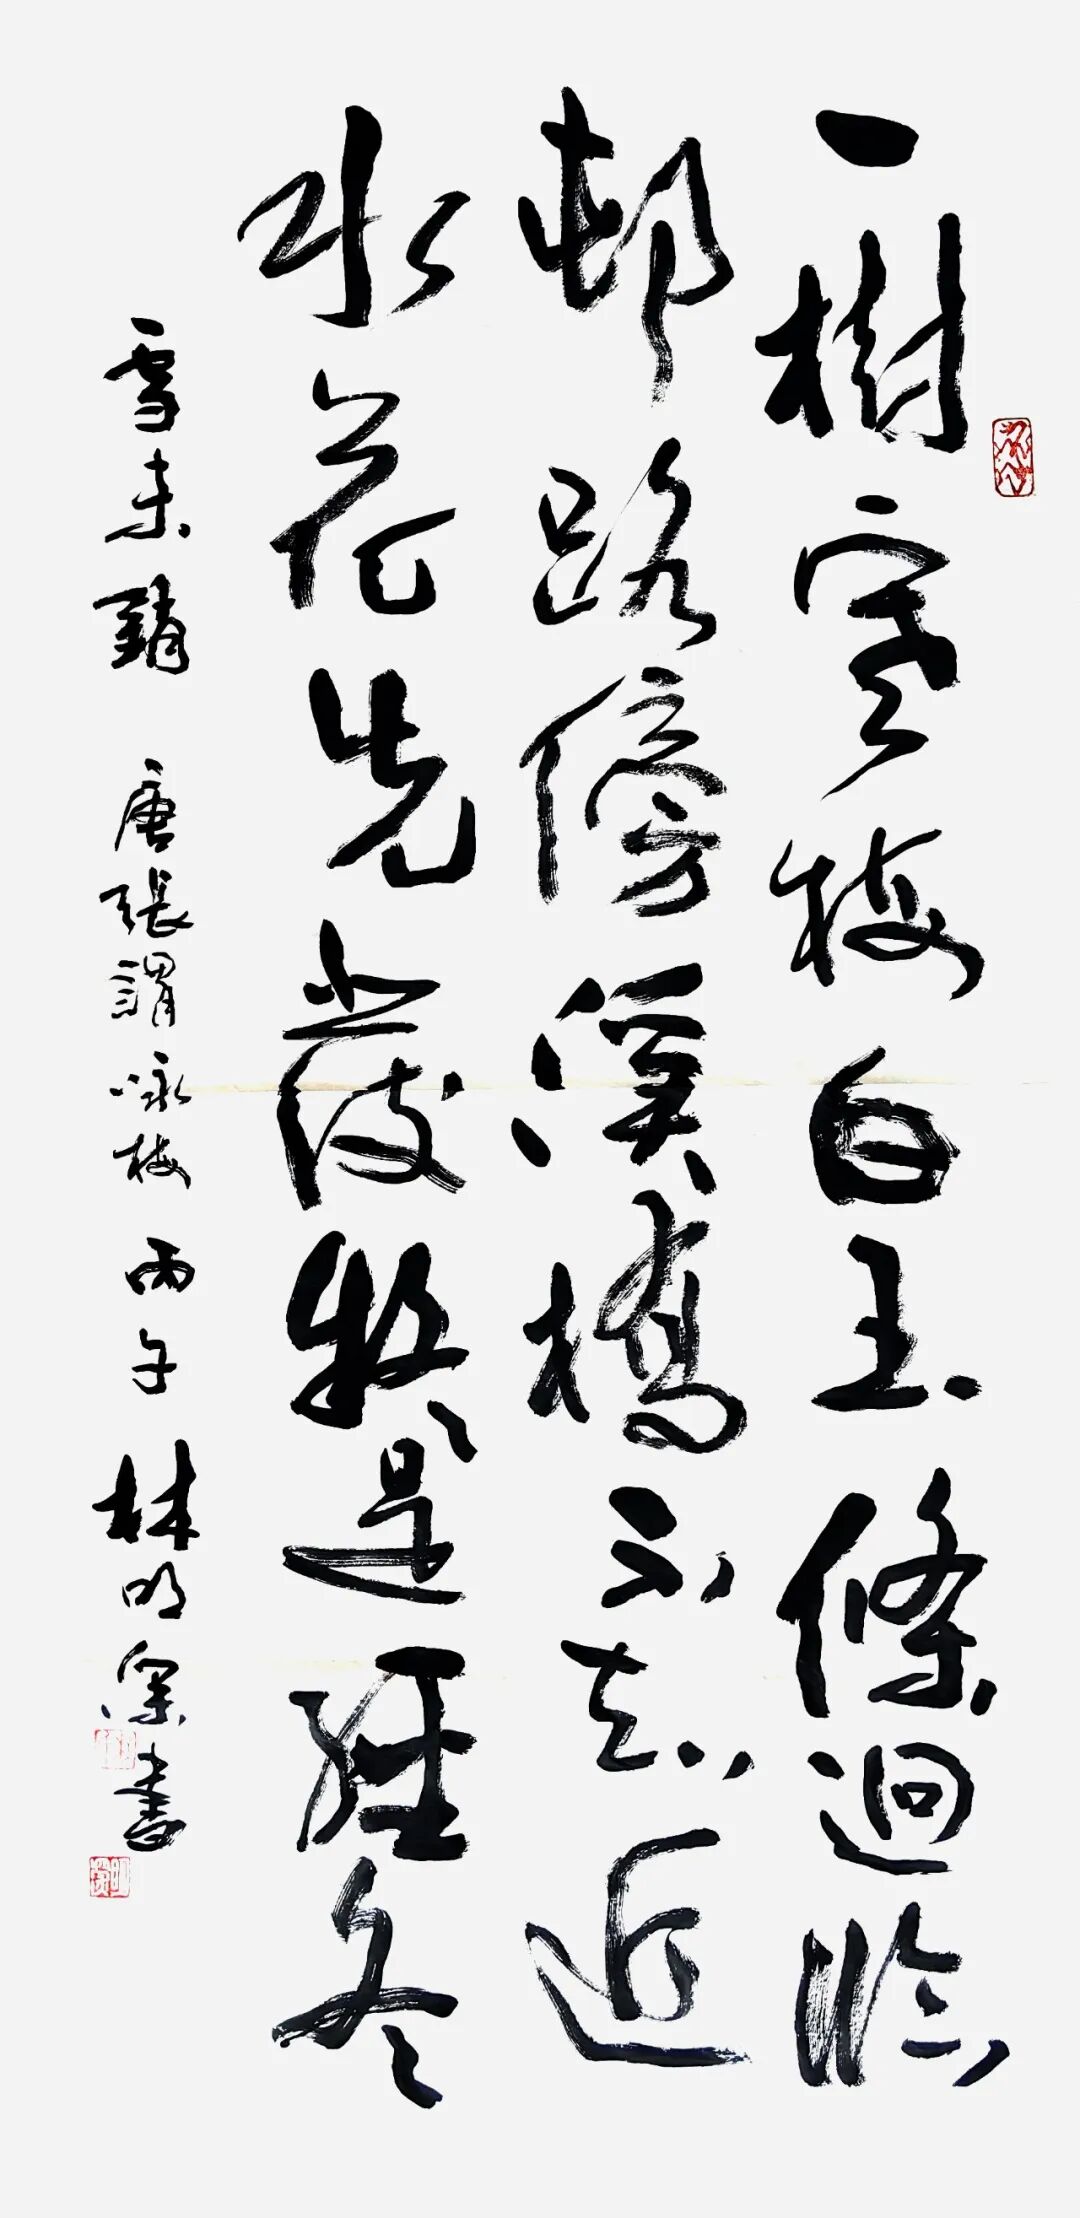 一樹寒梅白玉條逈臨
邨路傍溪橋不知近
水花先發疑是經冬
雪未銷 唐張謂咏梅 丙午 林明深書